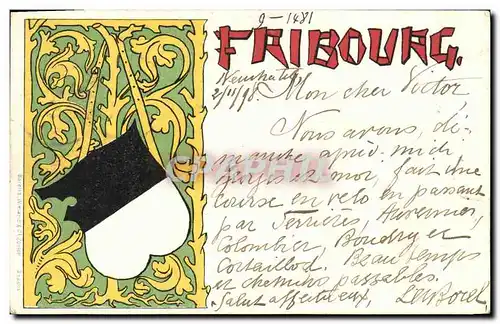 9-1481
FRIBOURG.
Neuchâtel
2/II/98. Mon cher Victor,
Nous avons, di-
manche après-midi
et moi, fait une
course en vélo en passant
par Serrières, Auvernier,
Colombier, Boudry et
Cortaillod. Beau temps
et chemins passables.
Salut affectueux,